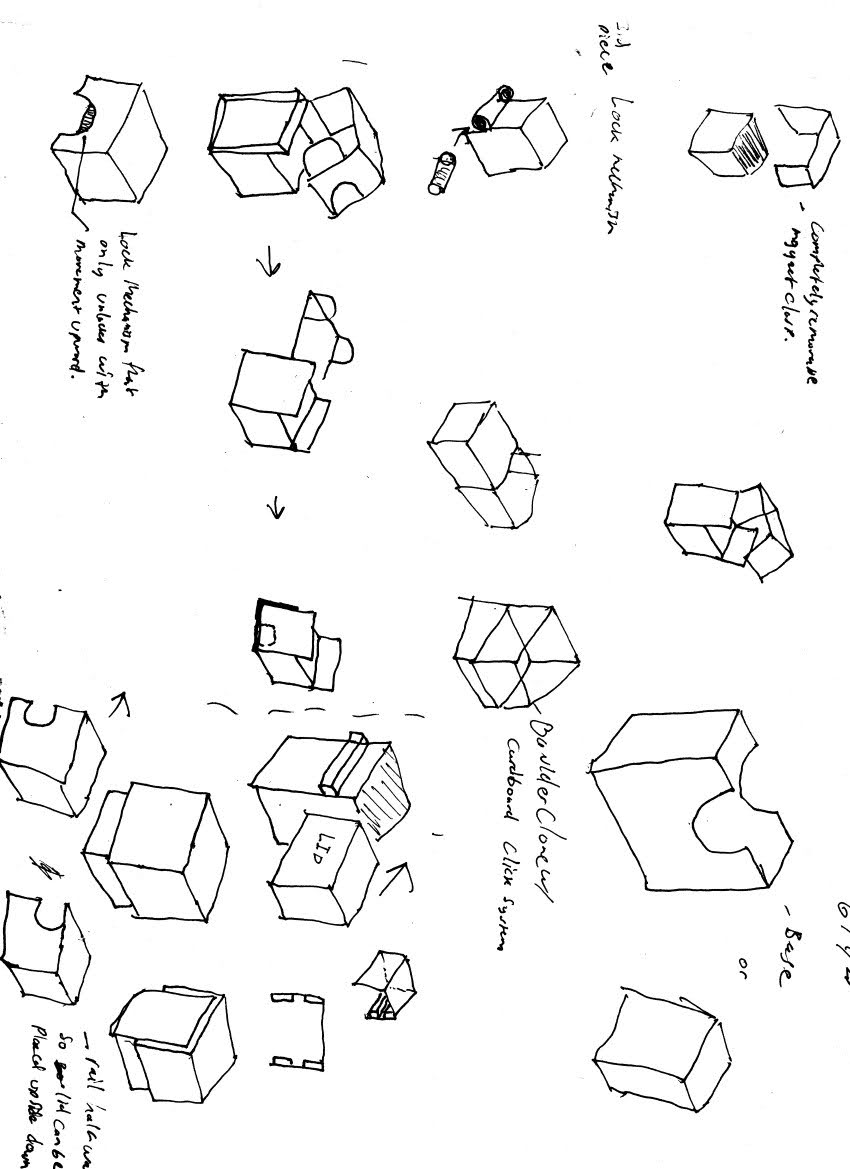 Completely removable
magnet clasp.
Base
or
3rd
piece
Lock mechanism
Boulder Clone w/
Cardboard Click System
LID
Lock Mechanism that
only unlocks with
movement upward.
rail halfwa
So lid can be
Placed upside down